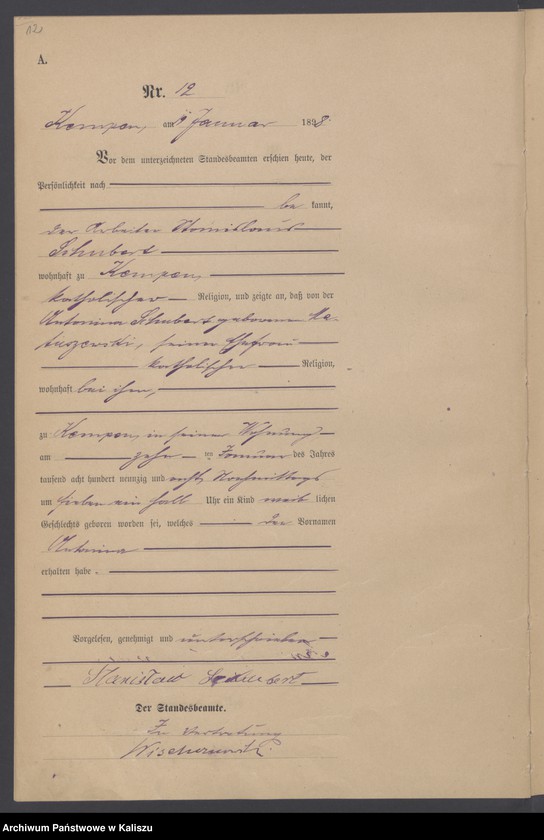 12
A.
Nr. 12
Kempen, am Januar 1898.
Vor dem unterzeichneten Standesbeamten erschien heute, der
Persönlichkeit nach
be kannt,
der Arbeiter Stanislaus
Schubert
wohnhaft zu Kempen,
katholischer Religion, und zeigte an, daß von der
Antonina Schubert geborene Ma-
tuszewski, seiner Ehefrau
katholischer Religion,
wohnhaft bei ihm,
zu Kempen, in seiner Wohnung
am zehn ten Januar des Jahres
tausend acht hundert neunzig und acht Nachmittags
um sieben ein halb Uhr ein Kind weib lichen
Geschlechts geboren worden sei, welches den Vornamen
Antonina
erhalten habe.
Vorgelesen, genehmigt und unterschrieben
Stanisław Schubert
Der Standesbeamte.
In Vertretung
Archiwum Państwowe w Kaliszu